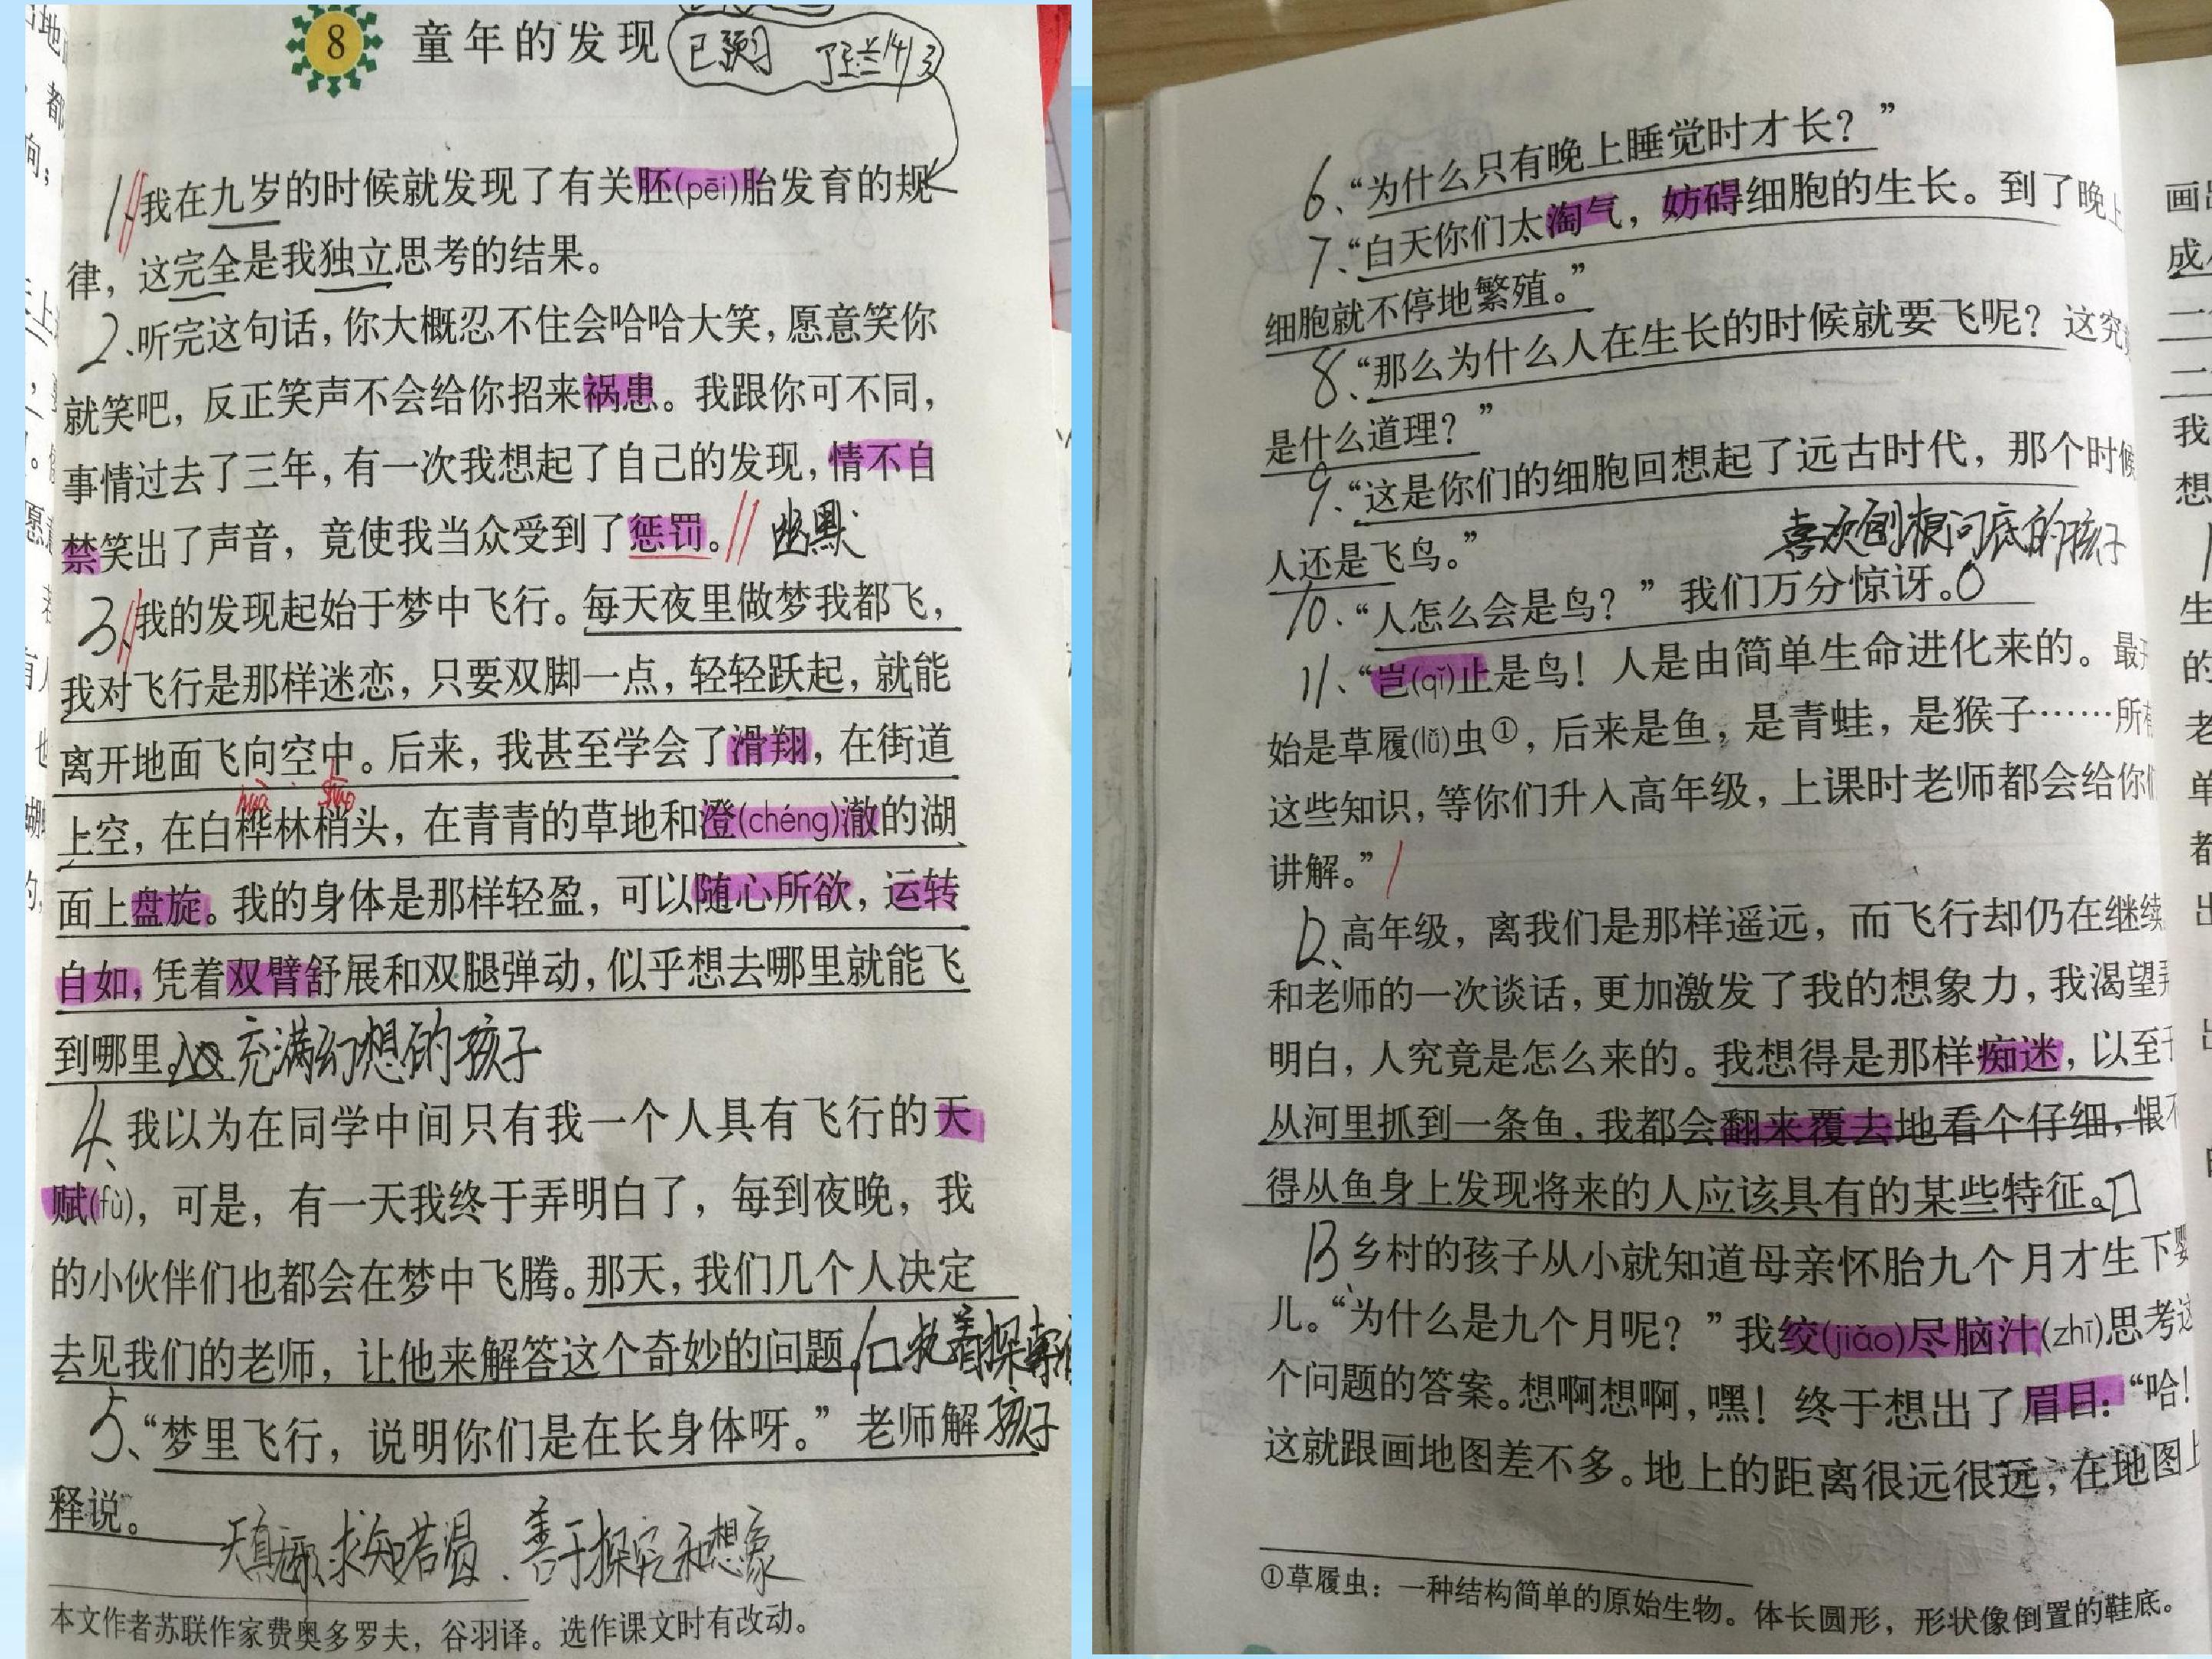 8 童年的发现 已预习
1、我在九岁的时候就发现了有关胚(pēi)胎发育的规
律，这完全是我独立思考的结果。
2、听完这句话，你大概忍不住会哈哈大笑，愿意笑你
就笑吧，反正笑声不会给你招来祸患。我跟你可不同，
事情过去了三年，有一次我想起了自己的发现，情不自
禁笑出了声音，竟使我当众受到了惩罚。 幽默
3、我的发现起始于梦中飞行。每天夜里做梦我都飞，
我对飞行是那样迷恋，只要双脚一点，轻轻跃起，就能
离开地面飞向空中。后来，我甚至学会了滑翔，在街道
huà shāo
上空，在白桦林梢头，在青青的草地和澄(chéng)澈的湖
面上盘旋。我的身体是那样轻盈，可以随心所欲，运转
自如，凭着双臂舒展和双腿弹动，似乎想去哪里就能飞
到哪里。 充满幻想的孩子
4、我以为在同学中间只有我一个人具有飞行的天
赋(fù)，可是，有一天我终于弄明白了，每到夜晚，我
的小伙伴们也都会在梦中飞腾。那天，我们几个人决定
去见我们的老师，让他来解答这个奇妙的问题。 执着探
5、“梦里飞行，说明你们是在长身体呀。”老师解 孩子
释说。
天真 求知若渴、善于探究和想象
本文作者苏联作家费奥多罗夫，谷羽译。选作课文时有改动。
6、“为什么只有晚上睡觉时才长？”
7、“白天你们太淘气，妨碍细胞的生长。到了晚上
细胞就不停地繁殖。”
8、“那么为什么人在生长的时候就要飞呢？这究
是什么道理？”
9、“这是你们的细胞回想起了远古时代，那个时候
喜欢刨根问底的孩子
人还是飞鸟。”
10、“人怎么会是鸟？”我们万分惊讶。
11、“岂(qǐ)止是鸟！人是由简单生命进化来的。最
始是草履(lǚ)虫①，后来是鱼，是青蛙，是猴子……所有
这些知识，等你们升入高年级，上课时老师都会给你们
讲解。”
12、高年级，离我们是那样遥远，而飞行却仍在继续
和老师的一次谈话，更加激发了我的想象力，我渴望
明白，人究竟是怎么来的。我想得是那样痴迷，以至于
从河里抓到一条鱼，我都会翻来覆去地看个仔细，恨不
得从鱼身上发现将来的人应该具有的某些特征。
13、乡村的孩子从小就知道母亲怀胎九个月才生下婴
儿。“为什么是九个月呢？”我绞(jiǎo)尽脑汁(zhī)思考这
个问题的答案。想啊想啊，嘿！终于想出了眉目：“哈！
这就跟画地图差不多。地上的距离很远很远，在地图上
①草履虫：一种结构简单的原始生物。体长圆形，形状像倒置的鞋底。